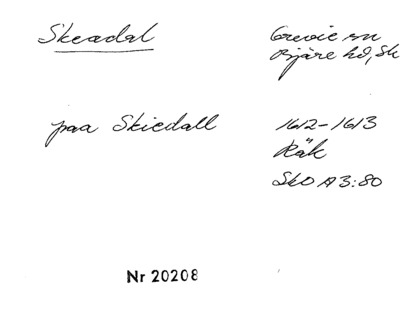 Skeadal
Grevie sn
Bjäre hd, Sk
paa Skiedall
1612-1613
Räk
SkO A3:80
Nr 20208